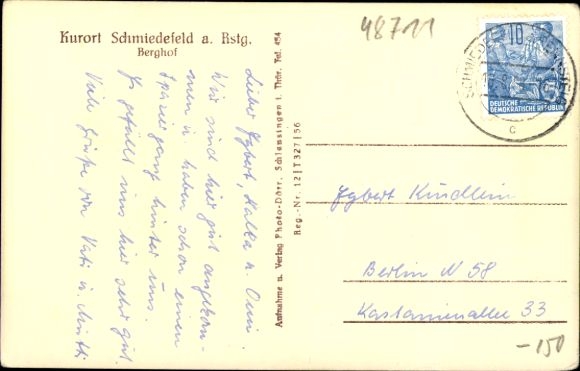 Kurort Schmiedefeld a. Rstg.
Berghof
48711
10
DEUTSCHE
DEMOKRATISCHE REPUBLIK
c
Lieber Egbert, Halka u. Omi.
Wir sind hier gut angekom-
men u. haben schon einen
Spaziergang hinter uns.
Es gefällt uns hier sehr gut.
Viele Grüße von Vati u. Mutti
Aufnahme u. Verlag Photo-Dörr, Schleusingen i. Thür. Tel. 454
Reg.-Nr. 12|T327|56
Egbert Kindlein
Berlin N 58
Kastanienallee 33
-150